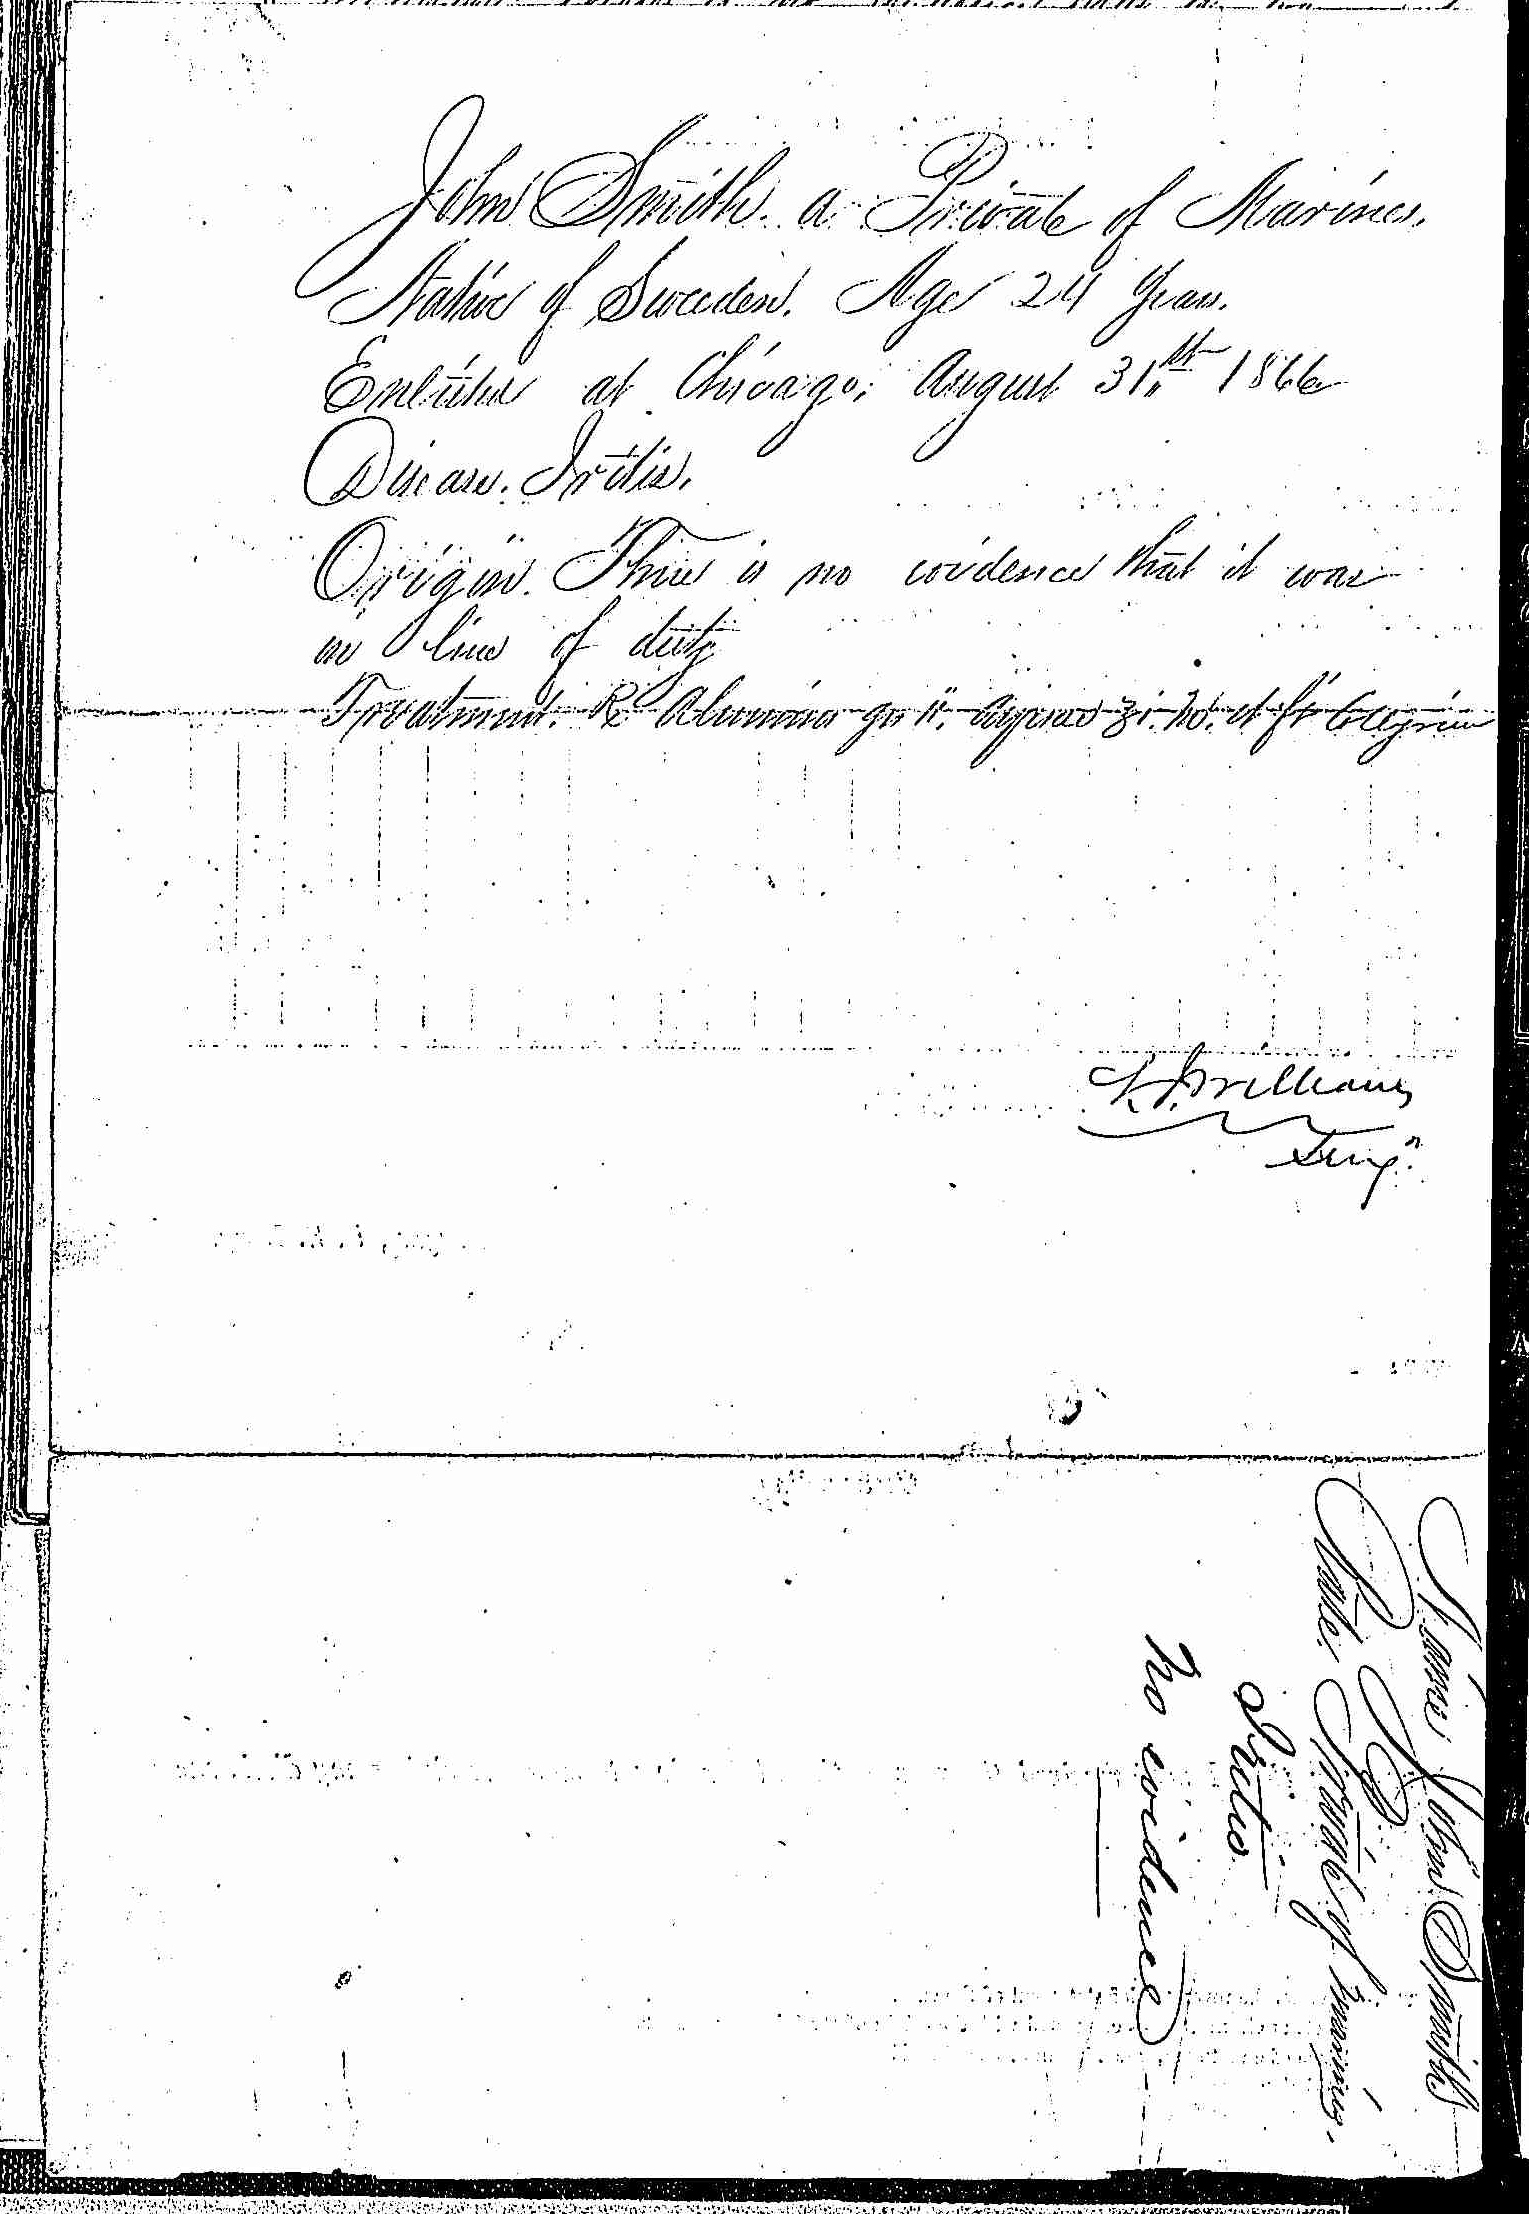 John Smith. a Private of Marines.
Native of Sweeden. Age 24 Years.
Enlisted at Chicago, August 31st 1866
Disease. Iritis.
Origin. There is no evidence that it was
in line of duty
Treatment. Rx Aluminis grs ii. Aquae ℥i. M. et ft Collyrium
Williams
Surgn
Name John Smith
Rate. Private of Marines.
Iritis
No evidence